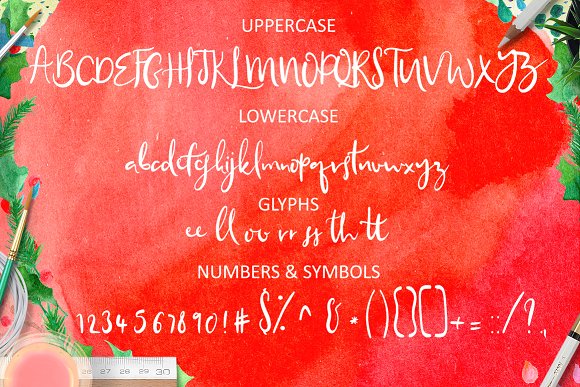 UPPERCASE
ABCDEFGHIJKLMNOPQRSTUVWXYZ
LOWERCASE
abcdefghijklmnopqrstuvwxyz
GLYPHS
ee ll oo rr ss th tt
NUMBERS & SYMBOLS
1234567890!#$%^&*()[]{}+=:;/?.,
26 27 28 29 30